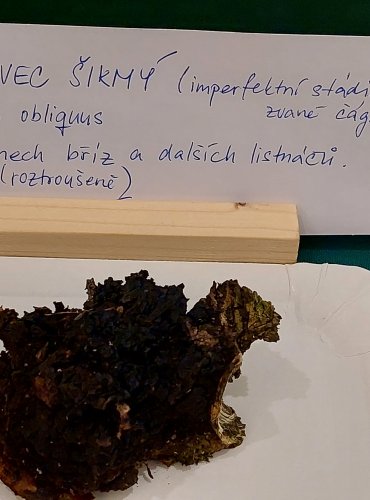 VEC ŠIKMÝ (imperfektní stádi
obliquus zvané čág
nech bříz a dalších listnáčů.
(roztroušeně)